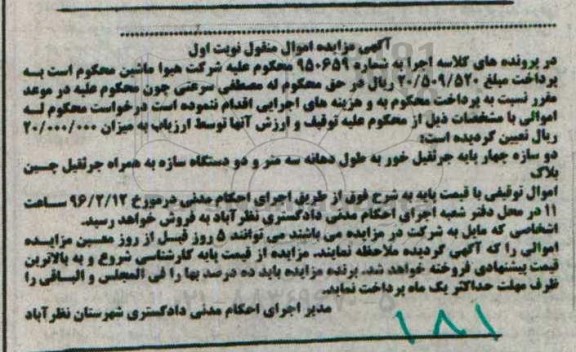 آگهی مزایده اموال منقول نوبت اول
در پرونده های کلاسه اجرا به شماره ۹۵۰۶۵۹ محکوم علیه شرکت هیوا ماشین محکوم است بـه
پرداخت مبلغ ۲۰/۵۰۹/۵۲۰ ریال در حق محکوم له مصطفی سرعتی چون محکوم علیه در موعد
مقرر نسبت به پرداخت محکوم به و هزینه های اجرایی اقدام ننموده است درخواست محکوم لـه
اموالی با مشخصات ذیل از محکوم علیه توقیف و ارزش آنها توسط ارزیاب به میزان ۲۰/۰۰۰/۰۰۰
ریال تعیین گردیده است:
دو سازه چهار پایه جرثقیل خور به طول دهانه سه متر و دو دستگاه سازه به همراه جرثقیل چسین
بلاک
اموال توقیفی با قیمت پایه به شرح فوق از طریق اجرای احکام مدنی درمورخ ۹۶/۲/۱۲ ســاعت
۱۱ در محل دفتر شعبه اجرای احکام مدنی دادگستری نظرآباد به فروش خواهد رسید.
اشخاصی که مایل به شرکت در مزایده می باشند می توانند ۵ روز قبـل از روز معـین مزایـده
اموالی را که آگهی گردیده ملاحظه نمایند. مزایده از قیمت پایه کارشناسی شروع و به بالاترین
قیمت پیشنهادی فروخته خواهد شد. برنده مزایده باید ده درصد بها را فی المجلس و البـاقی را
ظرف مهلت حداکثر یک ماه پرداخت نماید.
مدیر اجرای احکام مدنی دادگستری شهرستان نظرآباد
۱۸۱